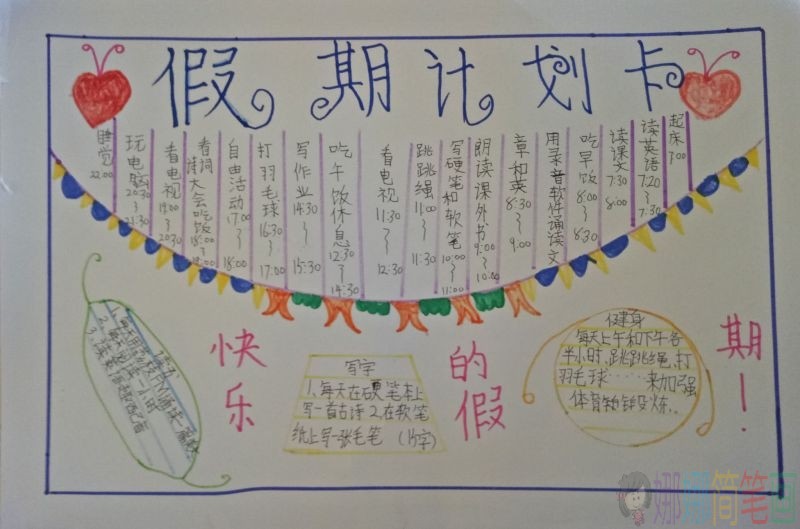 假期计划卡
起床 7:00
读英语 7:20~7:30
读课文 7:30 8:00
吃早饭 8:00~8:30
用录音软件诵读文
章和英 8:30~9:00
朗读课外书 9:00~10:00
写硬笔和软笔 10:00~11:00
跳跳绳 11:00~11:30
看电视 11:30~12:30
吃午饭休息 12:30~14:30
写作业 14:30~15:30
打羽毛球 16:30~17:00
自由活动 17:00~18:00
看诗词大会吃饭 18:00
看电视 19:00~20:30
玩电脑 20:30~21:30
睡觉 22:00
快乐的假期!
写字
1、每天在硬笔本上
写一首古诗 2、在软笔
纸上写一张毛笔
健身
每天上午和下午各
半小时,跳跳绳,打
羽毛球……来加强
体育锻炼..